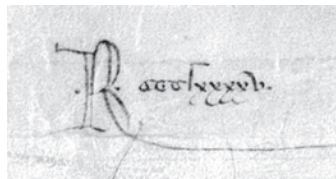 .R. ccclxxxxv.